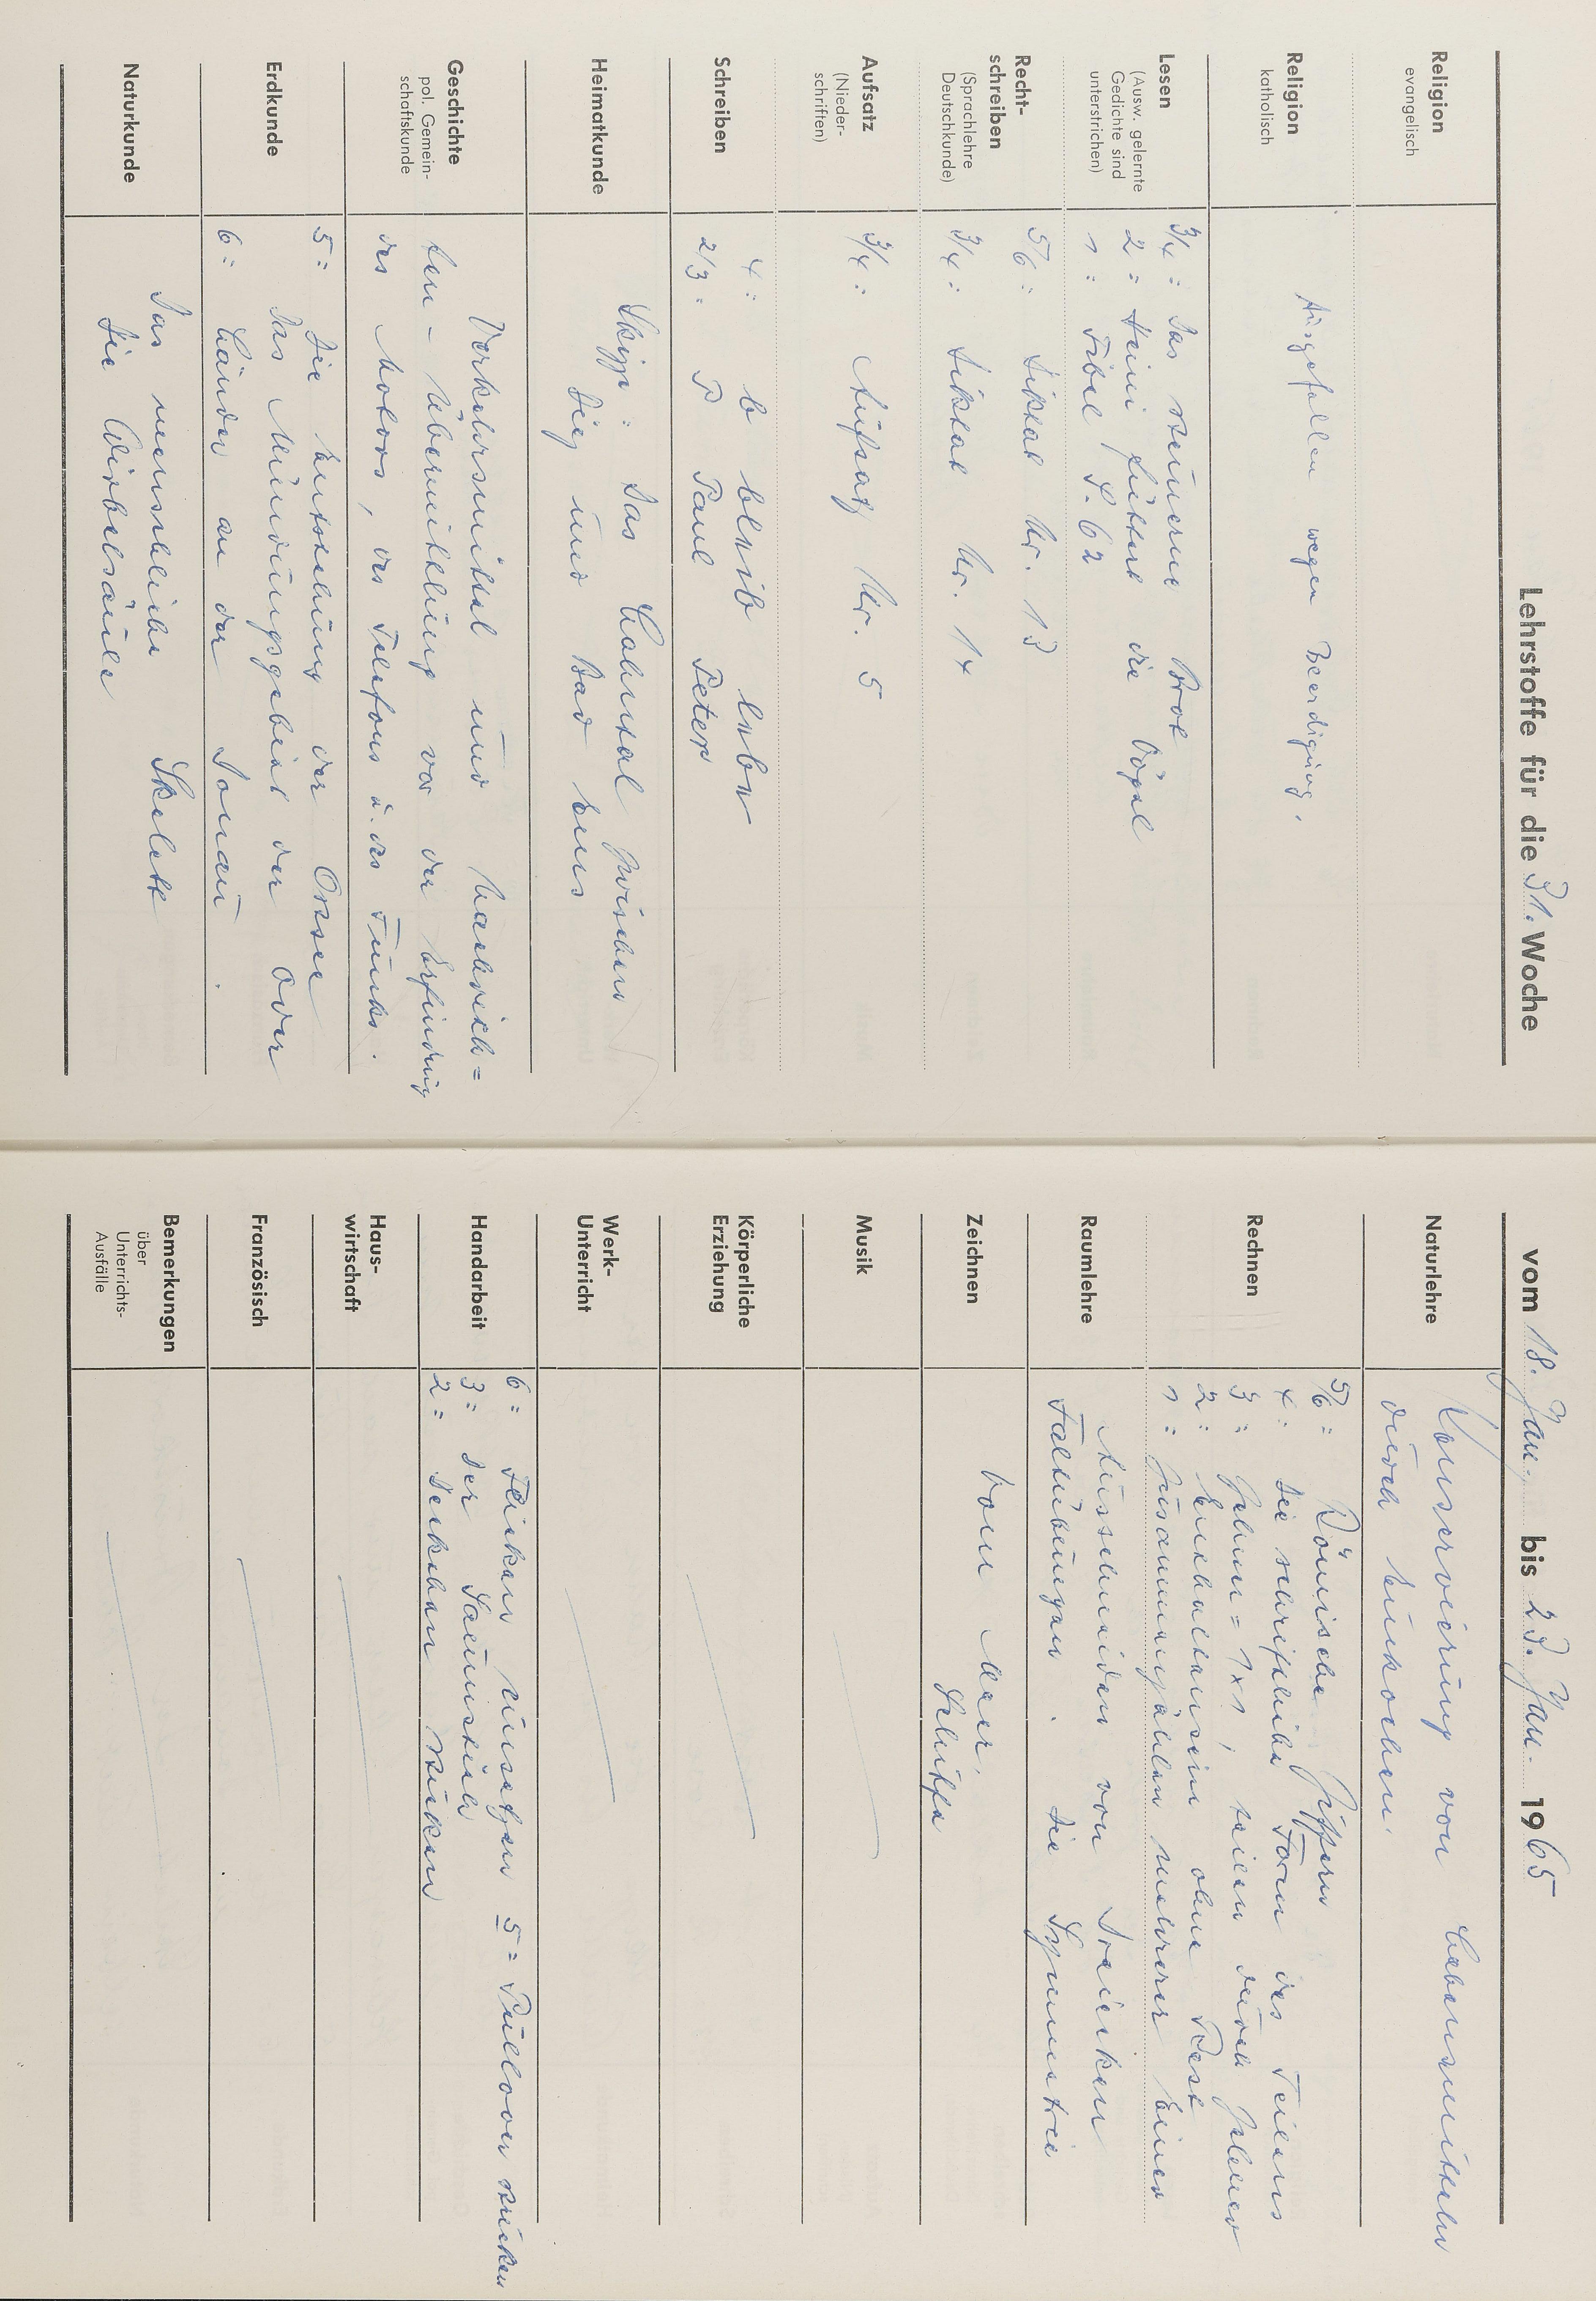 Lehrstoffe für die 31. Woche
Religion
evangelisch
Religion
katholisch
Ausgefallen wegen Beerdigung.
Lesen
(Ausw. gelernte
Gedichte sind
unterstrichen)
3/4 : Das steinerne Brot
2 : Heini füttert die Vögel
1 : Fibel S. 62
Recht-
schreiben
(Sprachlehre
Deutschkunde)
5/6 : Diktat Nr. 13
3/4 : Diktat Nr. 14
Aufsatz
(Nieder-
schriften)
3/4 : Aufsatz Nr. 5
Schreiben
4 : b bleib lebe
2/3 : P Paul Peter
Heimatkunde
Skizze : Das Lahntal zwischen
Diez und Bad Ems
Geschichte
pol. Gemein-
schaftskunde
Verkehrsmittel und Nachrich=
ten - Übermittlung vor der Erfindung
des Motors, des Telefons u. des Funks.
Erdkunde
5 : Die Entstehung der Ostsee
Das Mündungsgebiet der Oder
6 : Länder an der Donau.
Naturkunde
Das menschliche Skelett
Die Wirbelsäule
vom 18. Jan. bis 23. Jan. 1965
Naturlehre
Konservierung von Lebensmitteln
durch Einkochen.
Rechnen
5/6 : Römische Ziffern
4 : Die schriftliche Form des Teilens
3 : Zehner = 1x1, teilen durch Zehner
2 : Enthaltensein ohne Rest
1 : Zusammenzählen mehrerer Einer
Raumlehre
Ausschneiden von Dreiecken
Faltübungen. Die Symmetrie
Zeichnen
Vom Meer.
Schiffe
Musik
Körperliche
Erziehung
Werk-
Unterricht
Handarbeit
6 : Flicken einsetzen 5 = Pullover stricken
3 : Der Saumstich
2 : Deckchen sticken
Haus-
wirtschaft
Französisch
Bemerkungen
über
Unterrichts-
Ausfälle